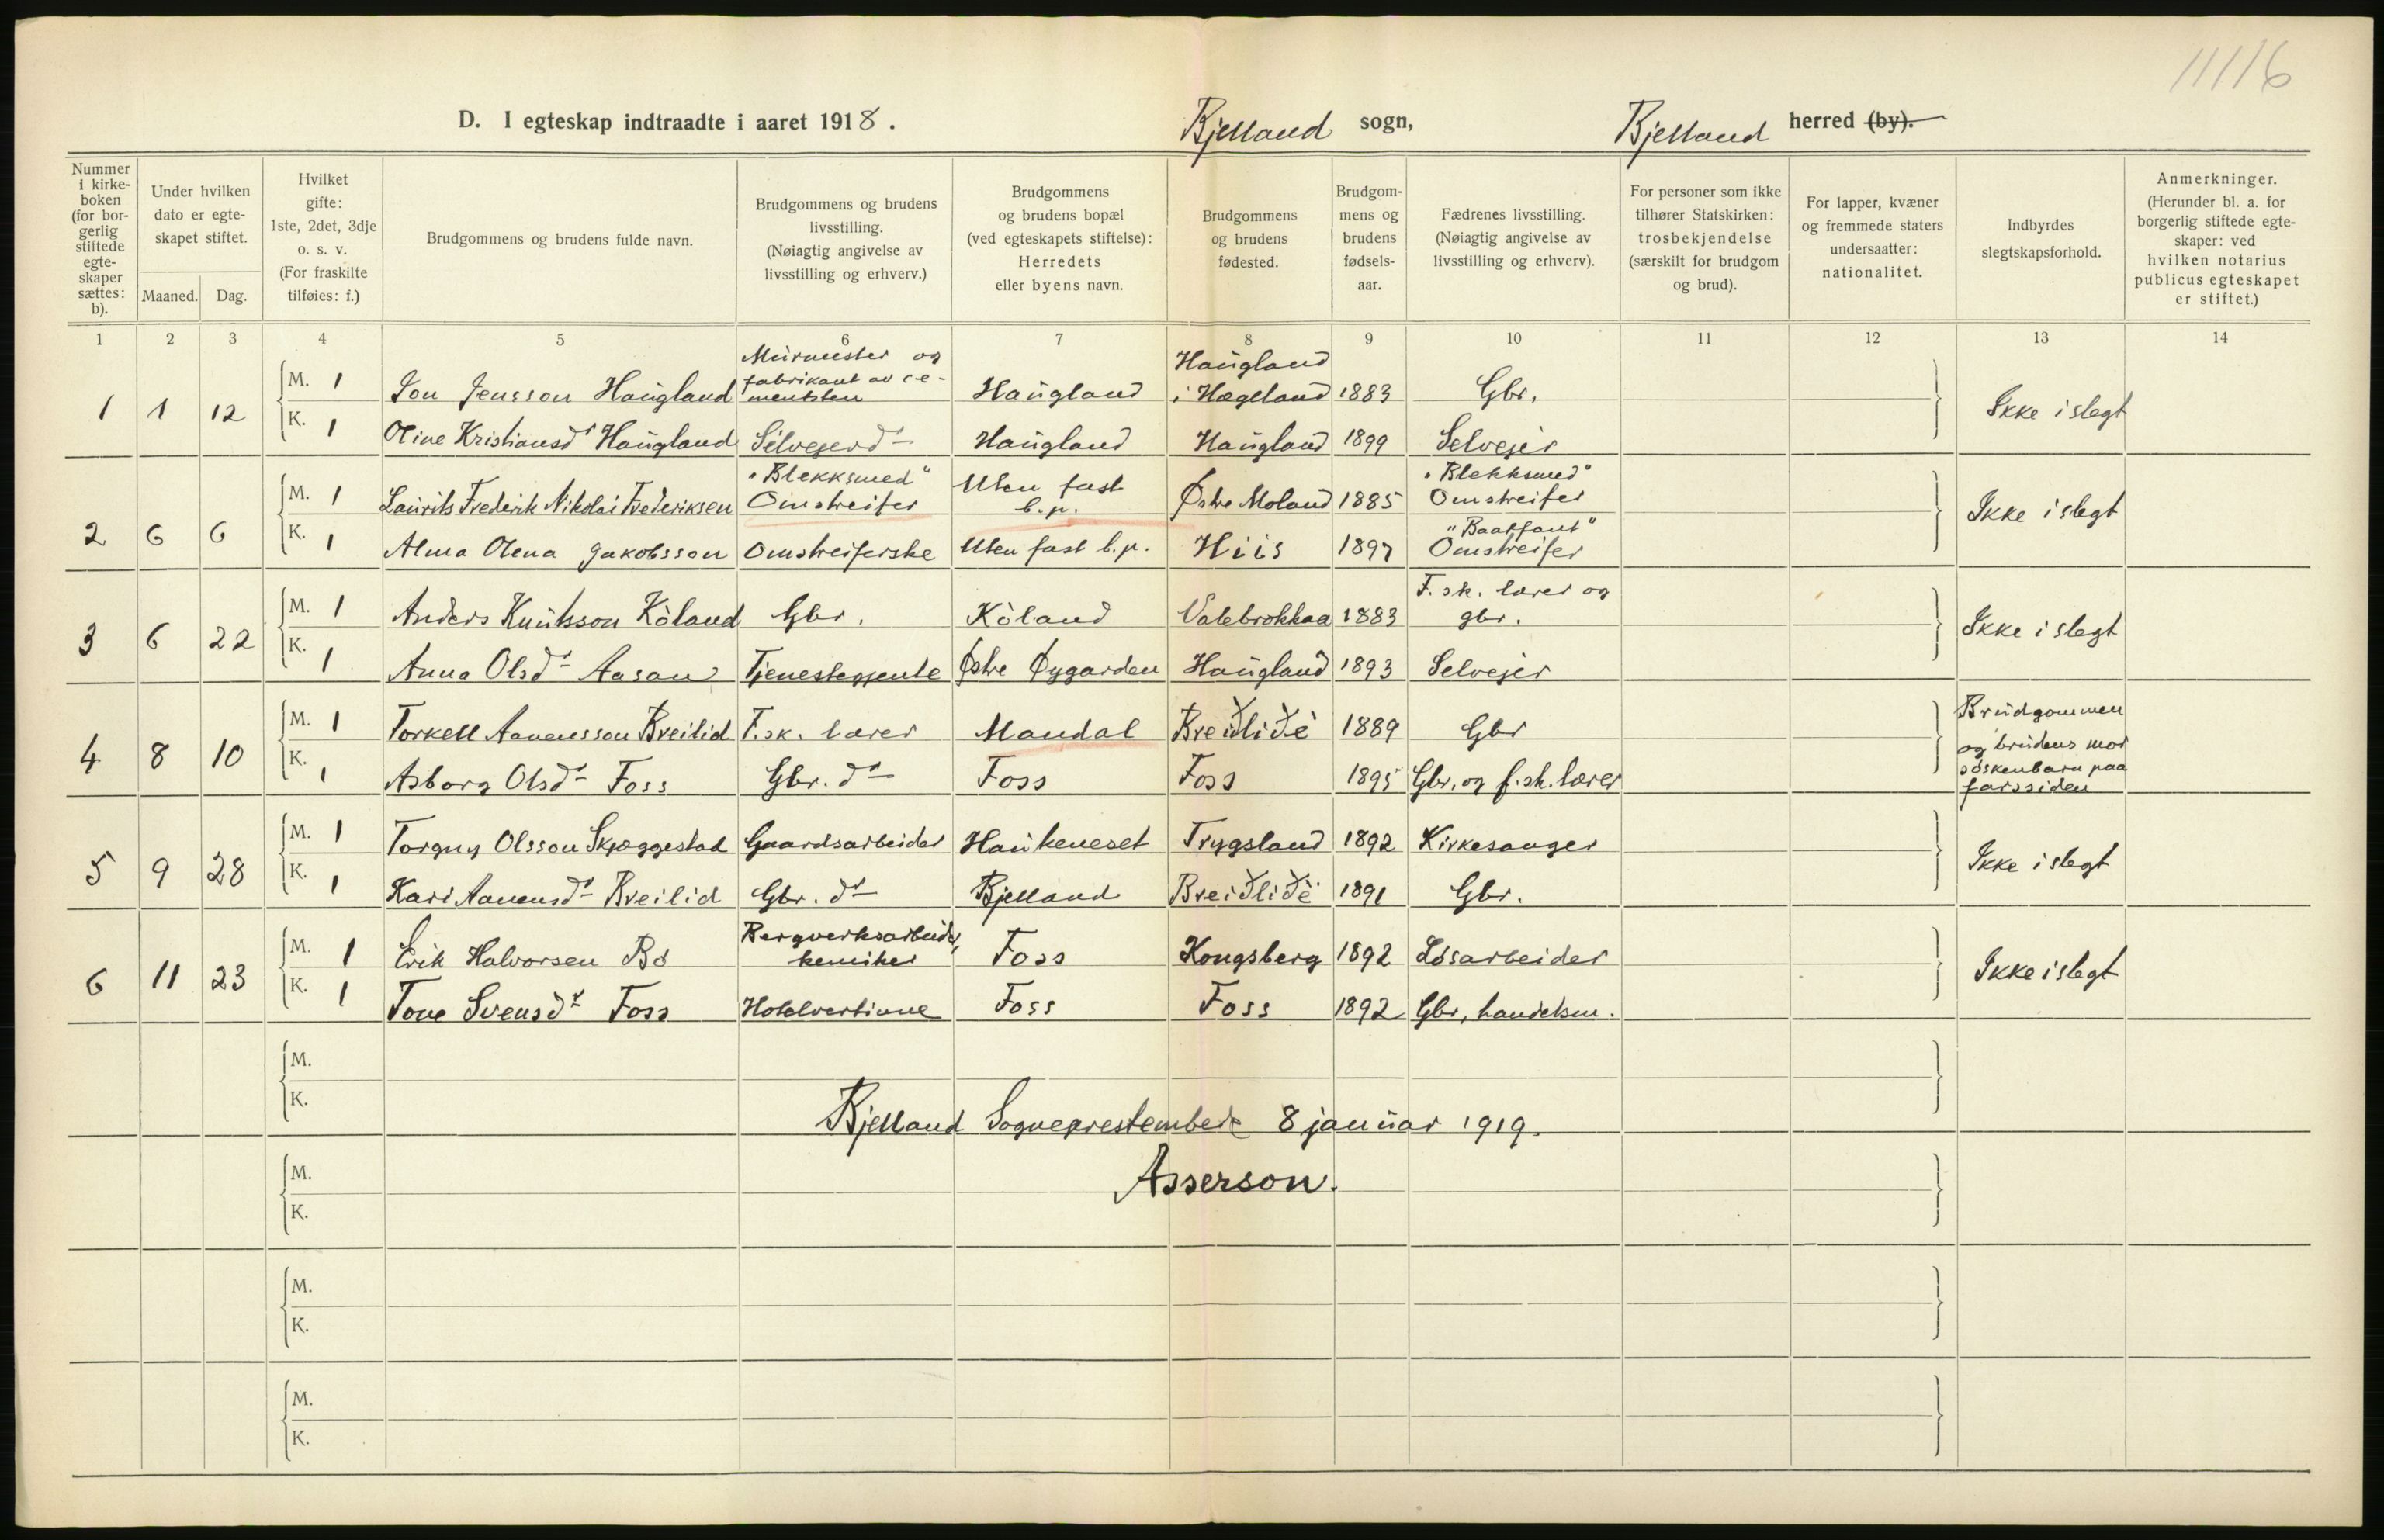 11116
D. I egteskap indtraadte i aaret 1918. Bjelland sogn, Bjelland herred (by).
Nummer i kirke- boken (for bor- gerlig stiftede egte- skaper sættes: b).
Under hvilken dato er egte- skapet stiftet.
Maaned. Dag.
Hvilket gifte: 1ste, 2det, 3dje o. s. v. (For fraskilte tilføies: f.)
Brudgommens og brudens fulde navn.
Brudgommens og brudens livsstilling. (Nøiagtig angivelse av livsstilling og erhverv.)
Brudgommens og brudens bopæl (ved egteskapets stiftelse): Herredets eller byens navn.
Brudgommens og brudens fødested.
Brudgom- mens og brudens fødsels- aar.
Fædrenes livsstilling. (Nøiagtig angivelse av livsstilling og erhverv).
For personer som ikke tilhører Statskirken: trosbekjendelse (særskilt for brudgom og brud).
For lapper, kvæner og fremmede staters undersaatter: nationalitet.
Indbyrdes slegtskapsforhold.
Anmerkninger. (Herunder bl. a. for borgerlig stiftede egte- skaper: ved hvilken notarius publicus egteskapet er stiftet.)
1 2 3 4 5 6 7 8 9 10 11 12 13 14
1 1 12 M. 1 Jon Jensson Haugland Murmester og fabrikant av ce- mentsten Haugland Haugland i Hægeland 1883 Gbr. Ikke i slegt
K. 1 Oline Kristiansdr Haugland Selvejerdr Haugland Haugland 1899 Selvejer
2 6 6 M. 1 Laurits Frederik Nikolai Frederiksen "Blekksmed" Omstreifer Uten fast b.p. Østre Moland 1885 "Blekksmed" Omstreifer Ikke i slegt
K. 1 Alma Olena Jakobsson Omstreiferske Uten fast b.p. Hiis 1897 "Baatfant" Omstreifer
3 6 22 M. 1 Anders Knutsson Köland Gbr. Köland Valebrokkaa 1883 F. sk. lærer og gbr. Ikke i slegt
K. 1 Anna Olsdr Aasan Tjenestegjente Østre Øygarden Haugland 1893 Selvejer
4 8 10 M. 1 Torkell Aanensson Breilid F. sk. lærer Mandal Breidlide 1889 Gbr Brudgommen og brudens mor søskenbarn paa farssiden
K. 1 Asborg Olsdr Foss Gbr. dr Foss Foss 1895 Gbr. og f. sk. lærer
5 9 28 M. 1 Torgny Olsson Skjæggestad Gaardsarbeider Haukeneset Trygsland 1892 Kirkesanger Ikke i slegt
K. 1 Kari Aanensdr Breilid Gbr. dr Bjelland Breidlide 1891 Gbr.
6 11 23 M. 1 Erik Halvorsen Bö Bergverksarbeider, kemiker Foss Kongsberg 1892 Løsarbeider Ikke i slegt
K. 1 Tone Svensdr Foss Hotelvertinne Foss Foss 1892 Gbr, handelsm.
M.
K.
Bjelland Sogneprestembede 8 januar 1919.
M.
Asserson.
K.
M.
K.
M.
K.